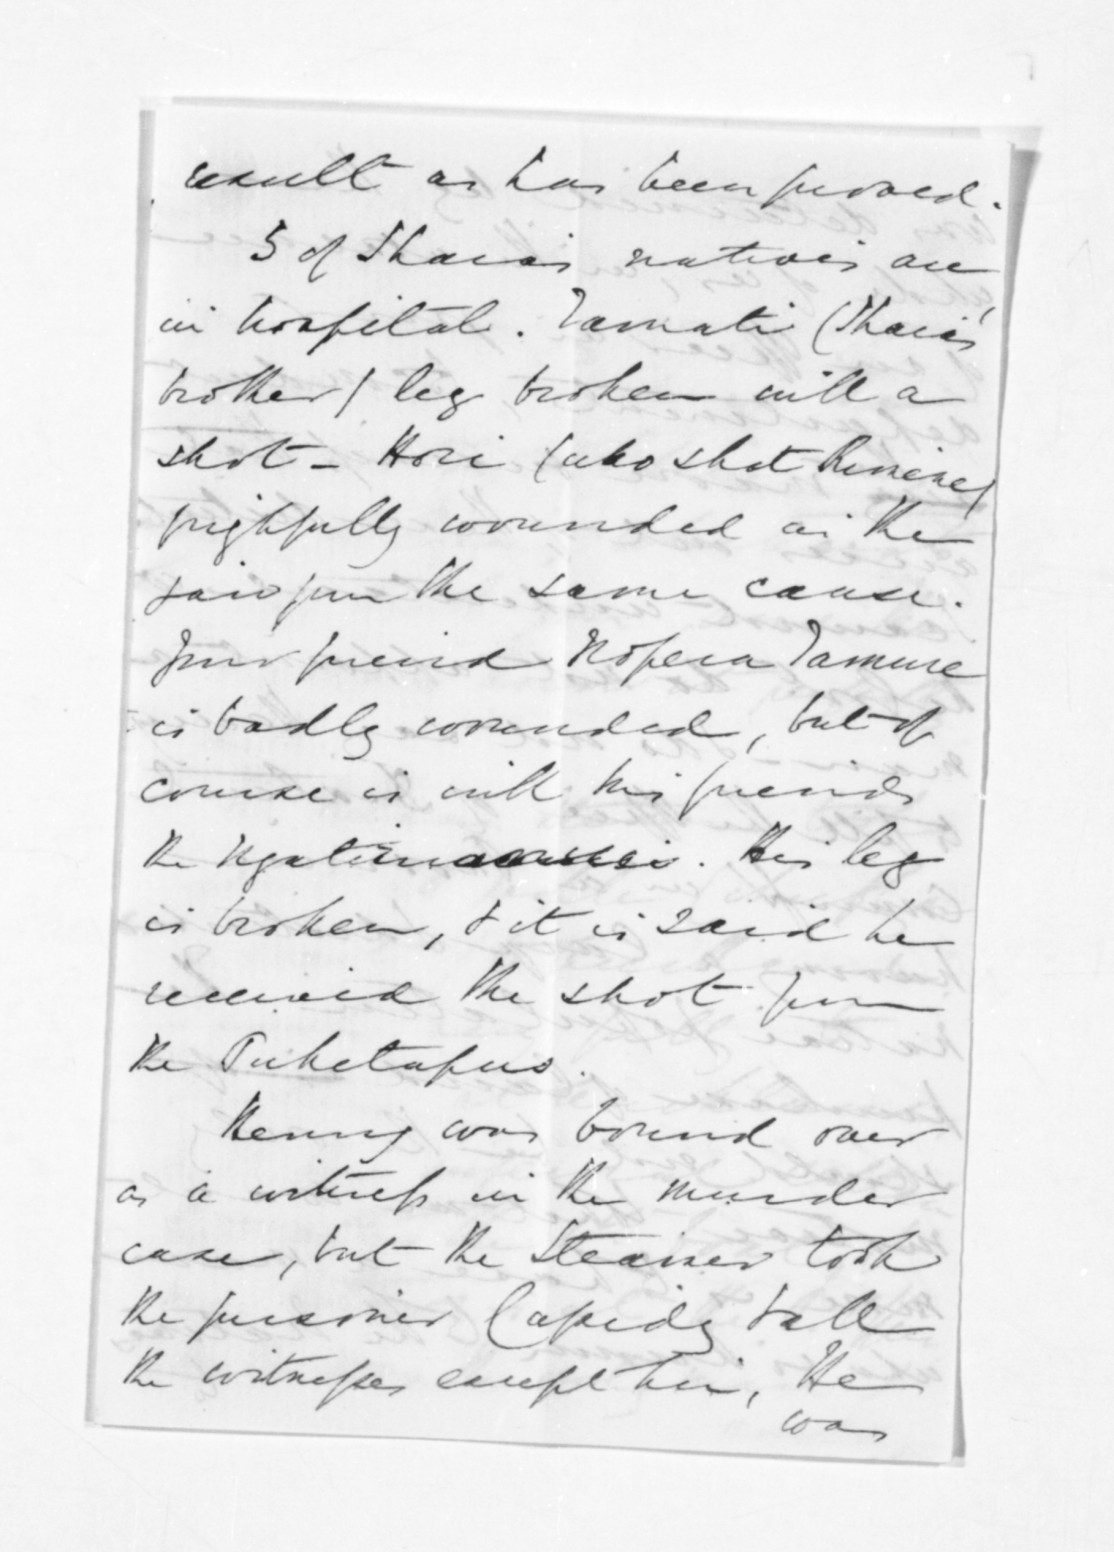 result as has been proved.
5 of Ihaia's natives are
in hospital. Tamati (Ihaia's
brother) leg broken with a
shot - Hori (who shot Rimene)
frightfully wounded in the
jaw from the same cause.
Your friend Nopera Tamure
is badly wounded, but of
course is with his friends
the . His leg
is broken, & it is said he
received the shot from
the Puketapus.
Henny was bound over
as a witness in the murder
case, but the Steamer took
the prisoner Cassidy & all
the witnesses except him, He
was